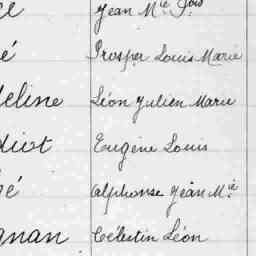 Jean M.ie Fois
é Prosper Louis Marie
deline Léon Julien Marie
diot Eugène Louis
bé Alphonse Jean M.ie
gnan Célestin Léon